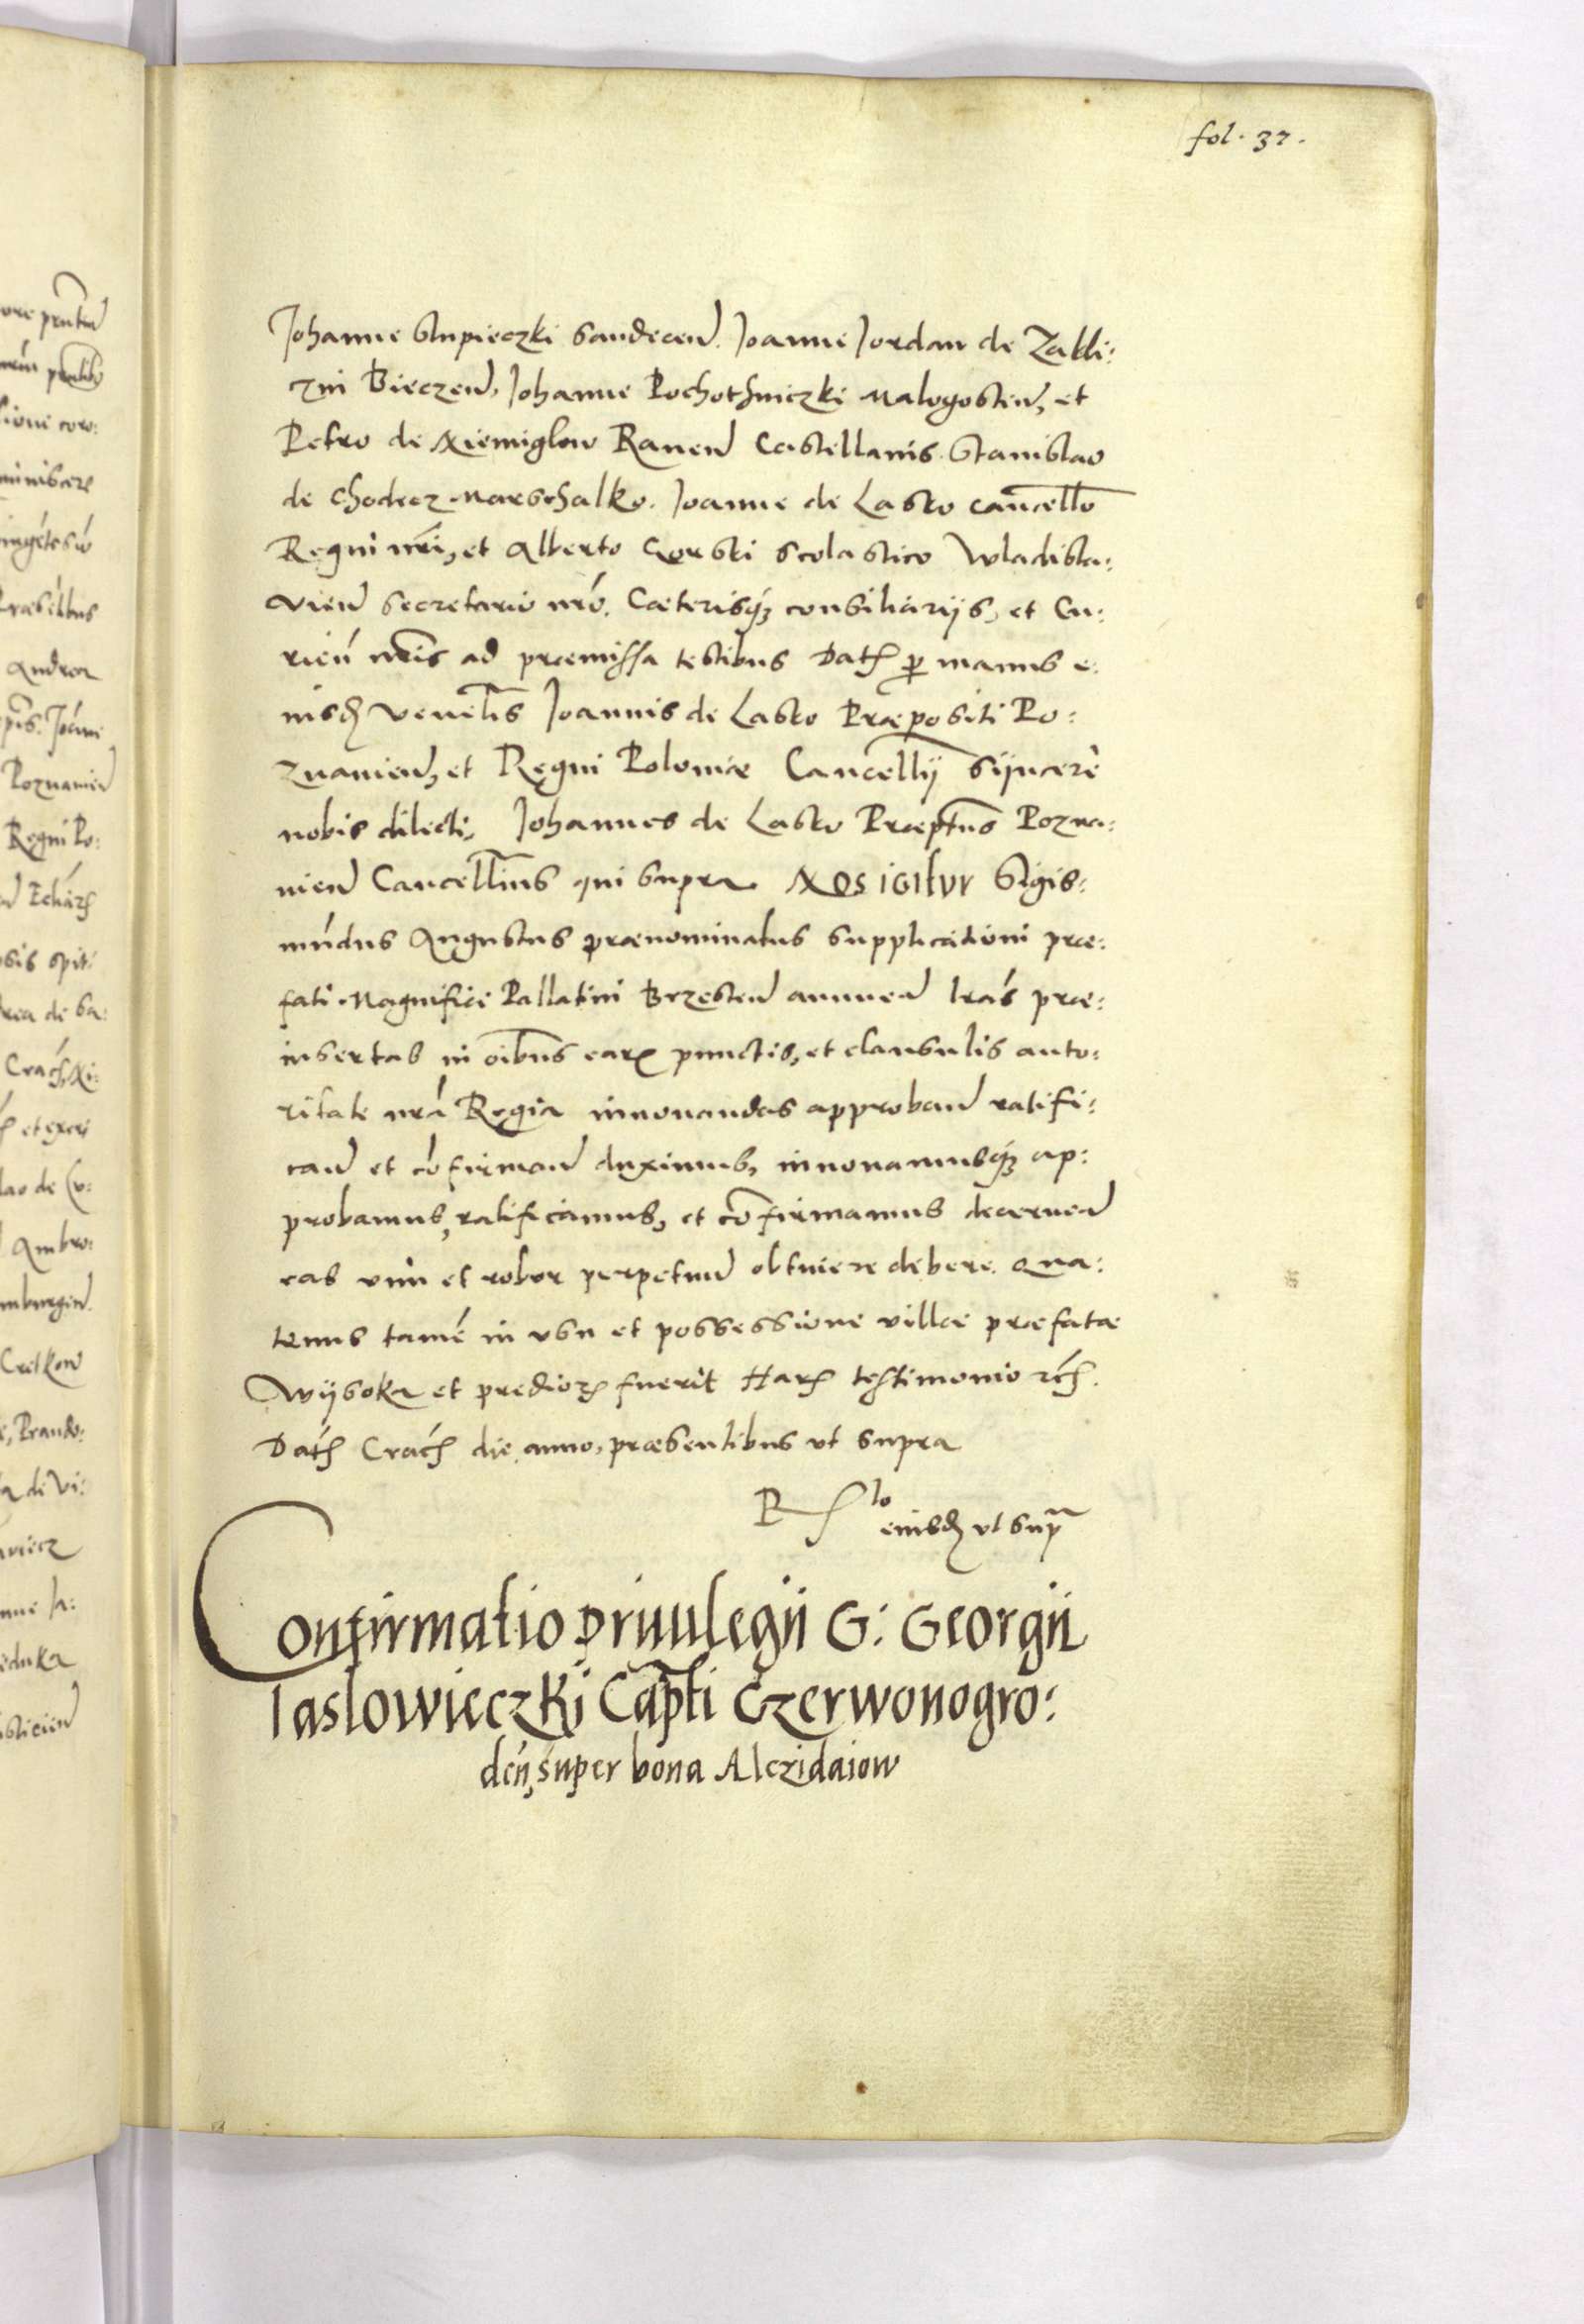 fol. 37.
Johanne Slupieczki Sandecen. Joanne Jordan de Zakli:
czin Bieczen, Johanne Pochothniczki Malogosten, et
Petro de Niemiglow Raven Castellanis. Stanislao
de Chodecz Marschalko. Joanne de Lasko Cancello
Regni nri, et Alberto Gorski Scolastico Wladisla:
vien Secretario nro. Cæterisq3 consiliarijs, et Cu:
rien nris ad præmissa testibus Dat p manus e:
iusd Venelis Joannis de Lasko Præpositi Po:
znanien, et Regni Poloniæ Cancellij Sijncere
nobis dilecti, Johannes de Lasko Præptus Pozna:
nien Cancellius qui supra Nos igitur Sigis:
mundus Augustus prænominatus supplicationi præ:
fati Magnifici Pallatini Brzesten annuen lras præ:
insertas in oibus earz punctis, et clausulis auto:
ritate nra Regia innouandas approband ratifi:
cand et cofirmand duximus, innouamusq3 ap:
probamus, ratificamus, et cofirmamus decernen
eas vim et robor perpetuu obtinere debere. Qua:
tenus tame in vsu et possessione villæ præfatæ
Wijsoka et predioz fuerit Harz testimonio rch.
Dat Crac die, anno, præsentibus vt supra
R lo
eiusd vt supra
Confirmatio priuulegii G: Georgii
Iaslowieczkj Capti Czerwonogro:
den, super bona Alczidaiow